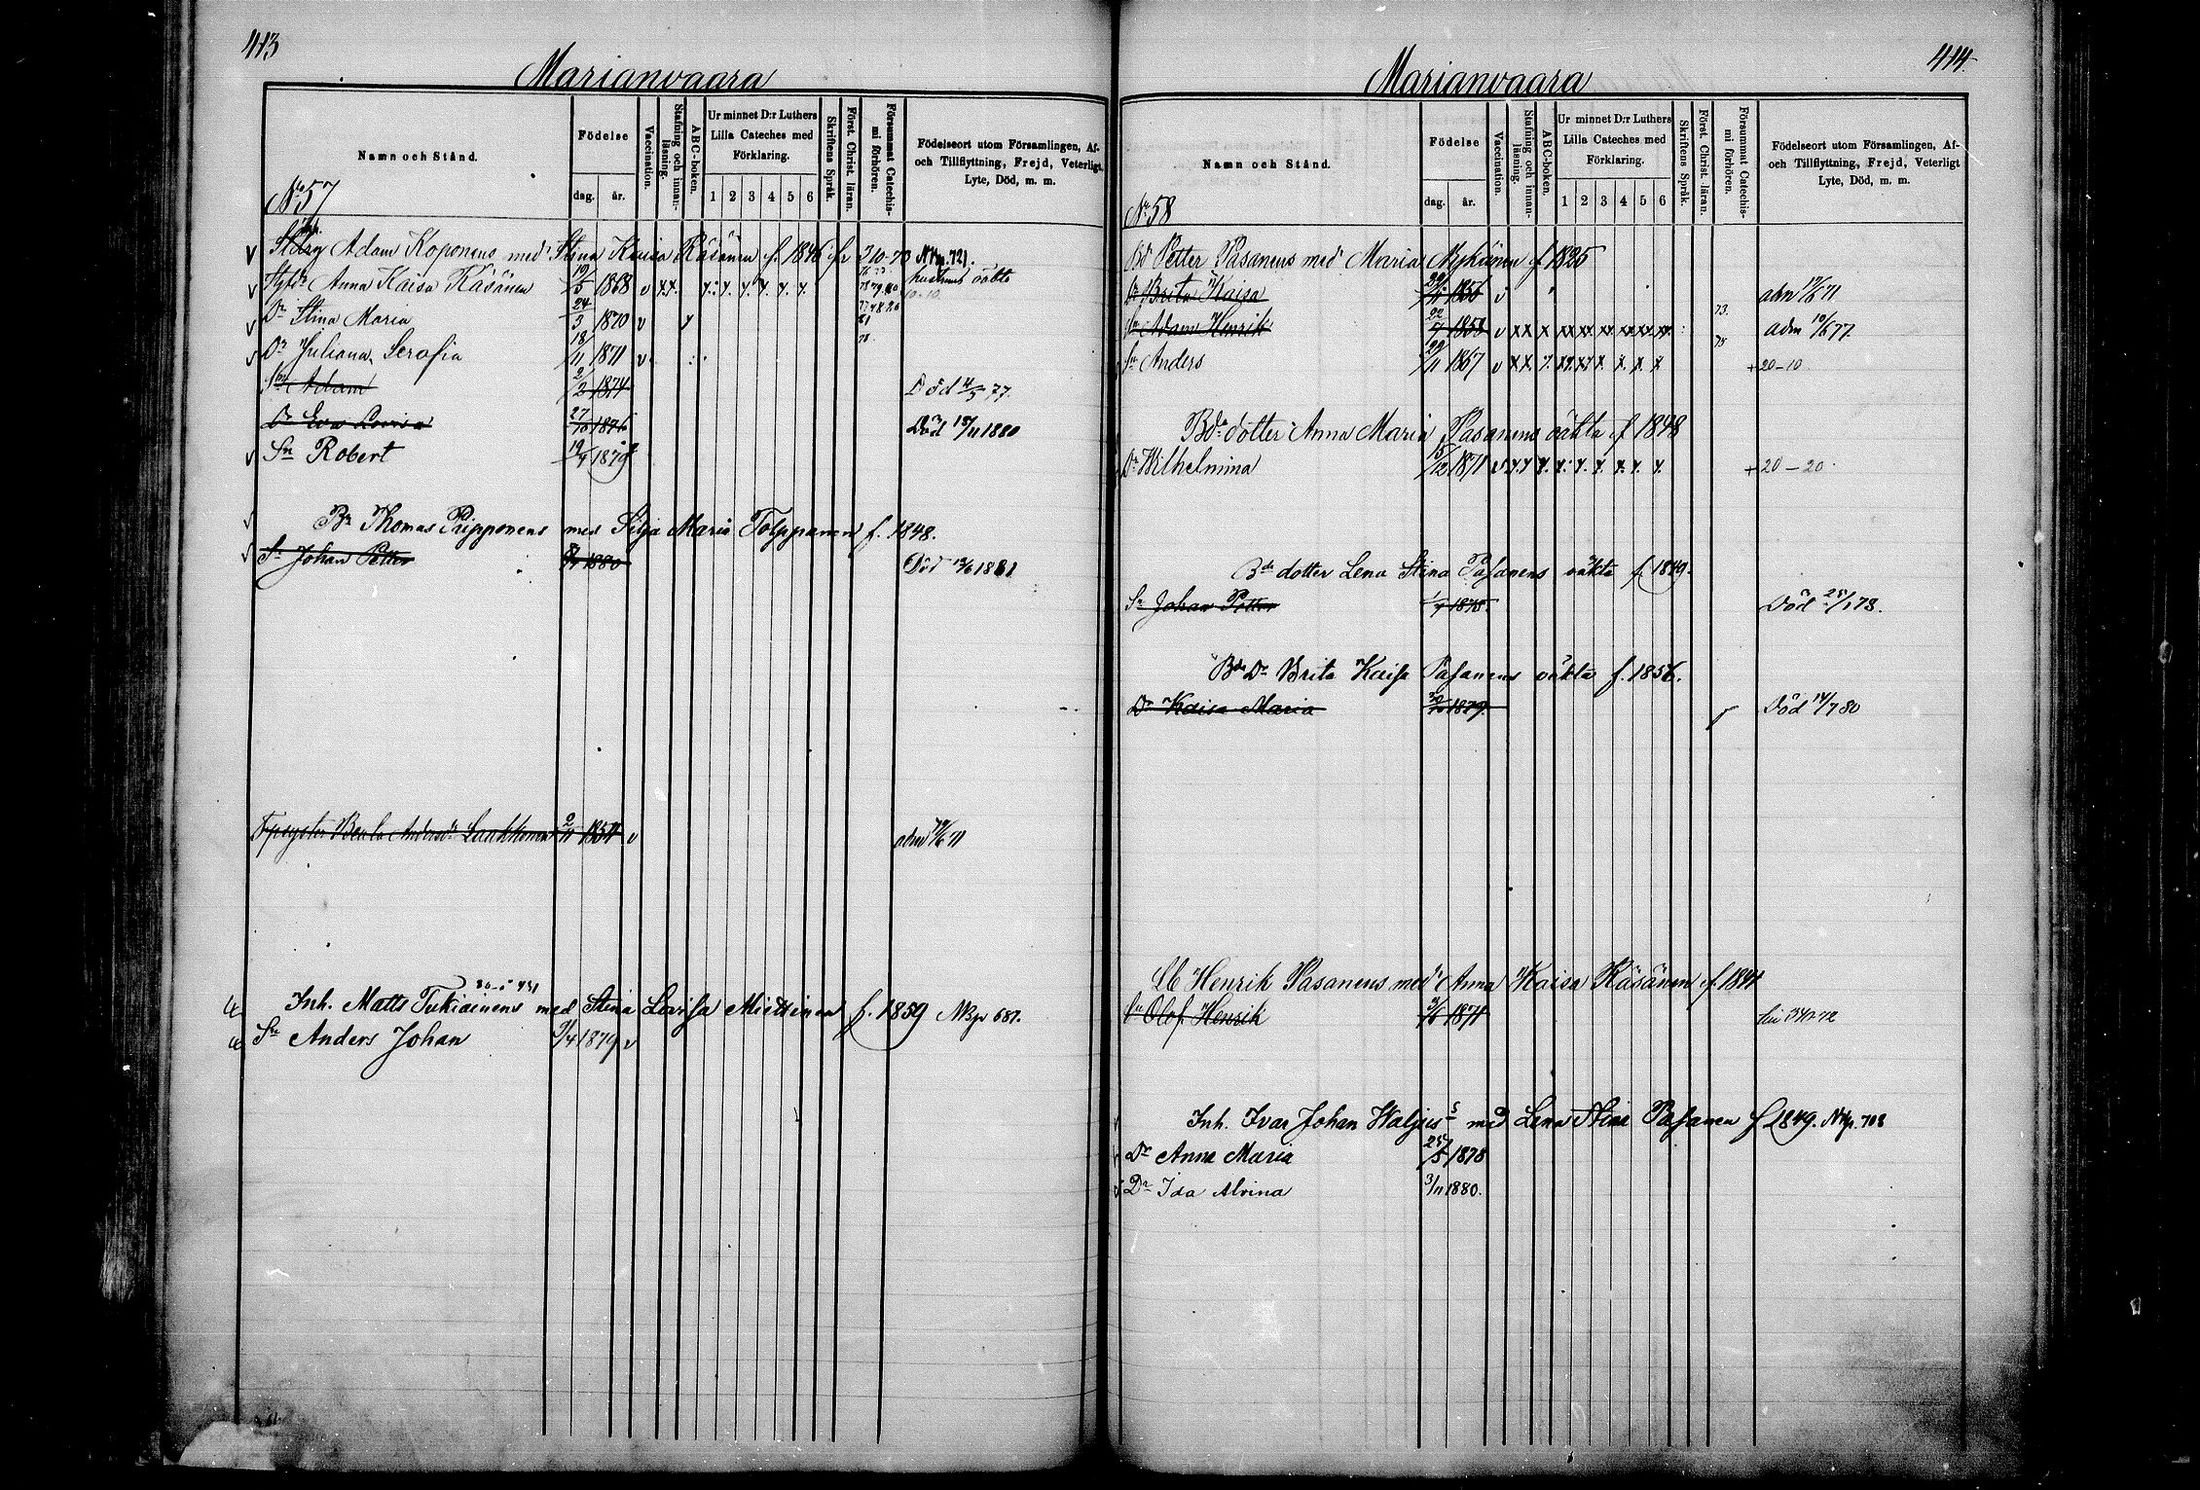 413
Marianvaara
Namn och Stånd.
Födelse
dag. år.
Vaccination.
Stafning och innan-läsning.
ABC-boken.
Ur minnet D:r Luthers Lilla Cateches med Förklaring.
1 2 3 4 5 6
Skriftens Språk.
Först. Christ. läran.
Försummat Catechis-mi förhören.
Födelseort utom Församlingen, Af- och Tillflyttning, Frejd, Veterligt Lyte, Död, m. m.
No 57
Adam Koponens med Stina Kaisa Räsänen f. 1846
Anna Kaisa Räsänen 19/5 1868 v
Dr Stina Maria 24/3 1870 v
Dr Juliana Serafia 18/11 1871 v
Sn Adam 2/2 1874 Död 77.
Dr Eva Lovisa 27/10 1876 Död 18/11 1880
Sn Robert 19/4 1879
Br Thomas Piipponens med Silja Maria Tolppanen f. 1848.
Sn Johan Petter 1880 Död 1881
Andersdr Laukkanen 2/11 1854 v adm 19/6 71
Inh. Matts Tukiainens med Stina Lovisa Miettinen f. 1859 687.
Sn Anders Johan /4 1879 v
414
Marianvaara
Namn och Stånd.
Födelse
dag. år.
Vaccination.
Stafning och innan-läsning.
ABC-boken.
Ur minnet D:r Luthers Lilla Cateches med Förklaring.
1 2 3 4 5 6
Skriftens Språk.
Först. Christ. läran.
Försummat Catechis-mi förhören.
Födelseort utom Församlingen, Af- och Tillflyttning, Frejd, Veterligt Lyte, Död, m. m.
No 58
Bd Petter Pasanens med Maria Nykänen f 1825
Dr Brita Kaisa 1856 v adm 19/6 71
Sn Adam Henrik 1858 v adm 10/6 77.
Sn Anders 29/11 1867 v + 20-10
Bds dotter Anna Maria Pasanens oäkta f 1848
Dr Wilhelmina 15/12 1871 v + 20-20
Bds dotter Lena Stina Pasanens oäkta f. 1849.
Sn Johan Petter 1878 Död 25/ 78.
Bds Dr Brita Kaisa Pasanens oäkta f. 1856.
Dr Kaisa Maria 1879. Död 14/7 80
Henrik Pasanens med Anna Kaisa Räsänen f. 1844
Sn Olof Henrik 1871
Inh. Ivar Johan Waljus med Lena Stina Pasanen f 1849. 708
Dr Anna Maria 25/5 1878
Dr Ida Alvina 3/11 1880.